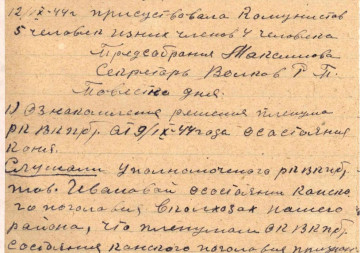 12/IX-44г присуствовала Комунистов
5 человек изних членов 4 человека
Предсобрания Максимова
Секретарь Волков Г П.
Повестка дня:
1) Ознакомления решения пленума
РК ВКПб/ от 9/IX-44 года о состояния
коня.
Слушали уполномоченого РК ВКПб/
тов. Иванова о состоянии конско
го поголовия в колхозах нашего
района, что пленумом РК ВКПб/
состояния конского поголовия